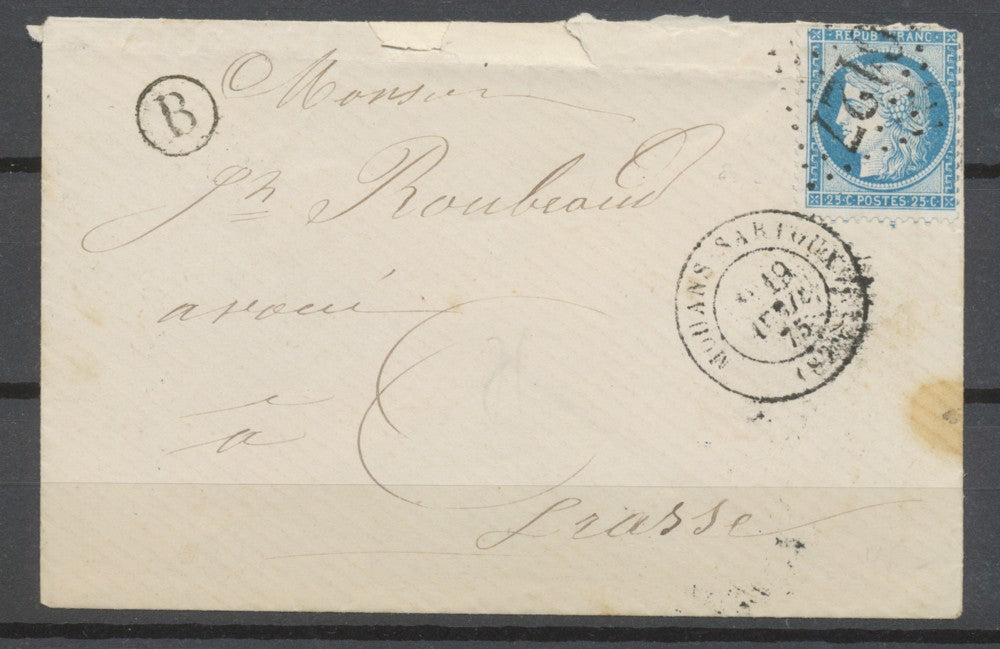 B
REPUB FRANC
25·C·POSTES·25·C
MOUANS SARTOUX
19
75
Monsieur
Jh Roubeaud
avoué
à
Grasse